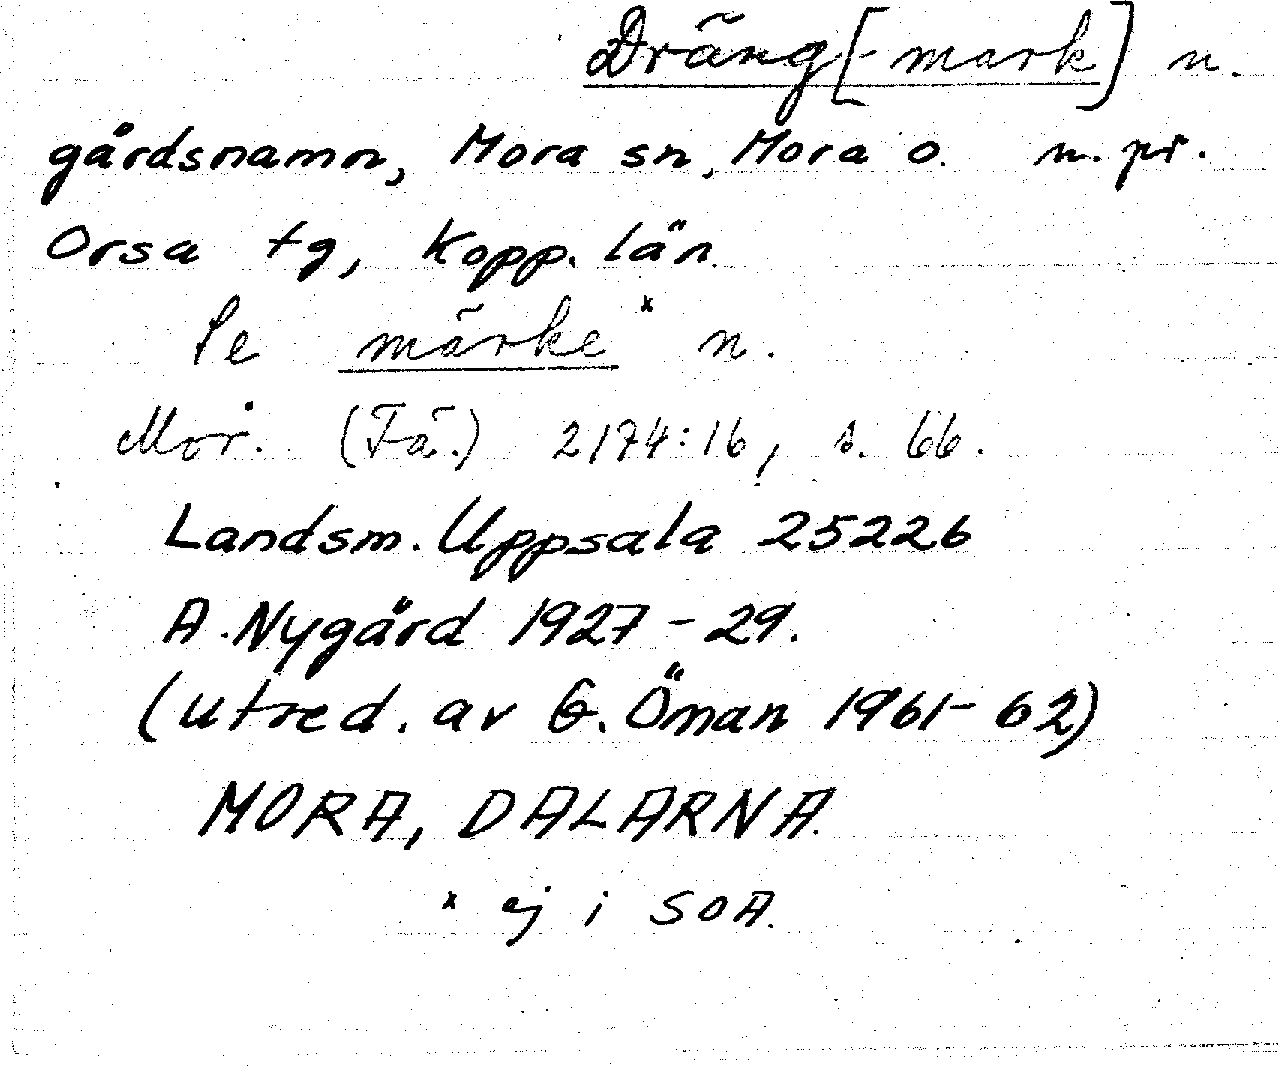 Dräng[-mark] n.
gårdsnamn, Mora sn, Mora o. n. pr.
Orsa tg, Kopp. län.
Se märke * n.
Mor. (Fä.) 2174:16, s. 66.
Landsm. Uppsala 25226
A. Nygård 1927-29.
(utred. av G. Öman 1961-62)
MORA, DALARNA.
* ej i SOA.